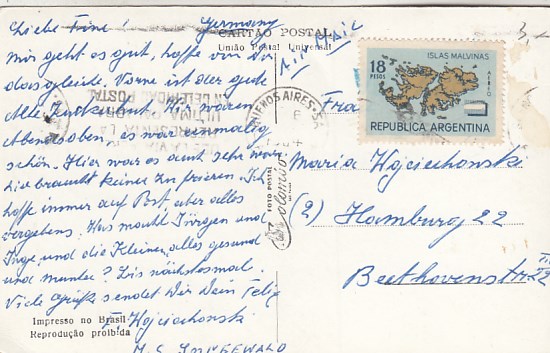 Liebe Fine! Germany
mir geht es gut, hoffe von Dir
dasgleiche. Vorne ist der gute
Alte Zuckerhut. Wir waren
Abends oben, es war einmalig
schön. Hier war es auch sehr warm
hier braucht keiner zu frieren. Ich
hoffe immer auf Post, aber alles
vergebens. Was macht Jürgen und
Inge und die Kleinen, alles gesund
und munter? Bis nächstesmal
Viele Grüße sendet Dir Dein Felix
Wojciechonski
M.S.
Impresso no Brasil
Reprodução proibida
CARTÃO POSTAL
União Postal Universal
Air Mail
FOTO POSTAL
Colombo
BUENOS AIRES
ISLAS MALVINAS
18
PESOS
AEREO
REPUBLICA ARGENTINA
Frau
Maria Wojciechonski
(2) Hamburg 22
Beethovenstr.